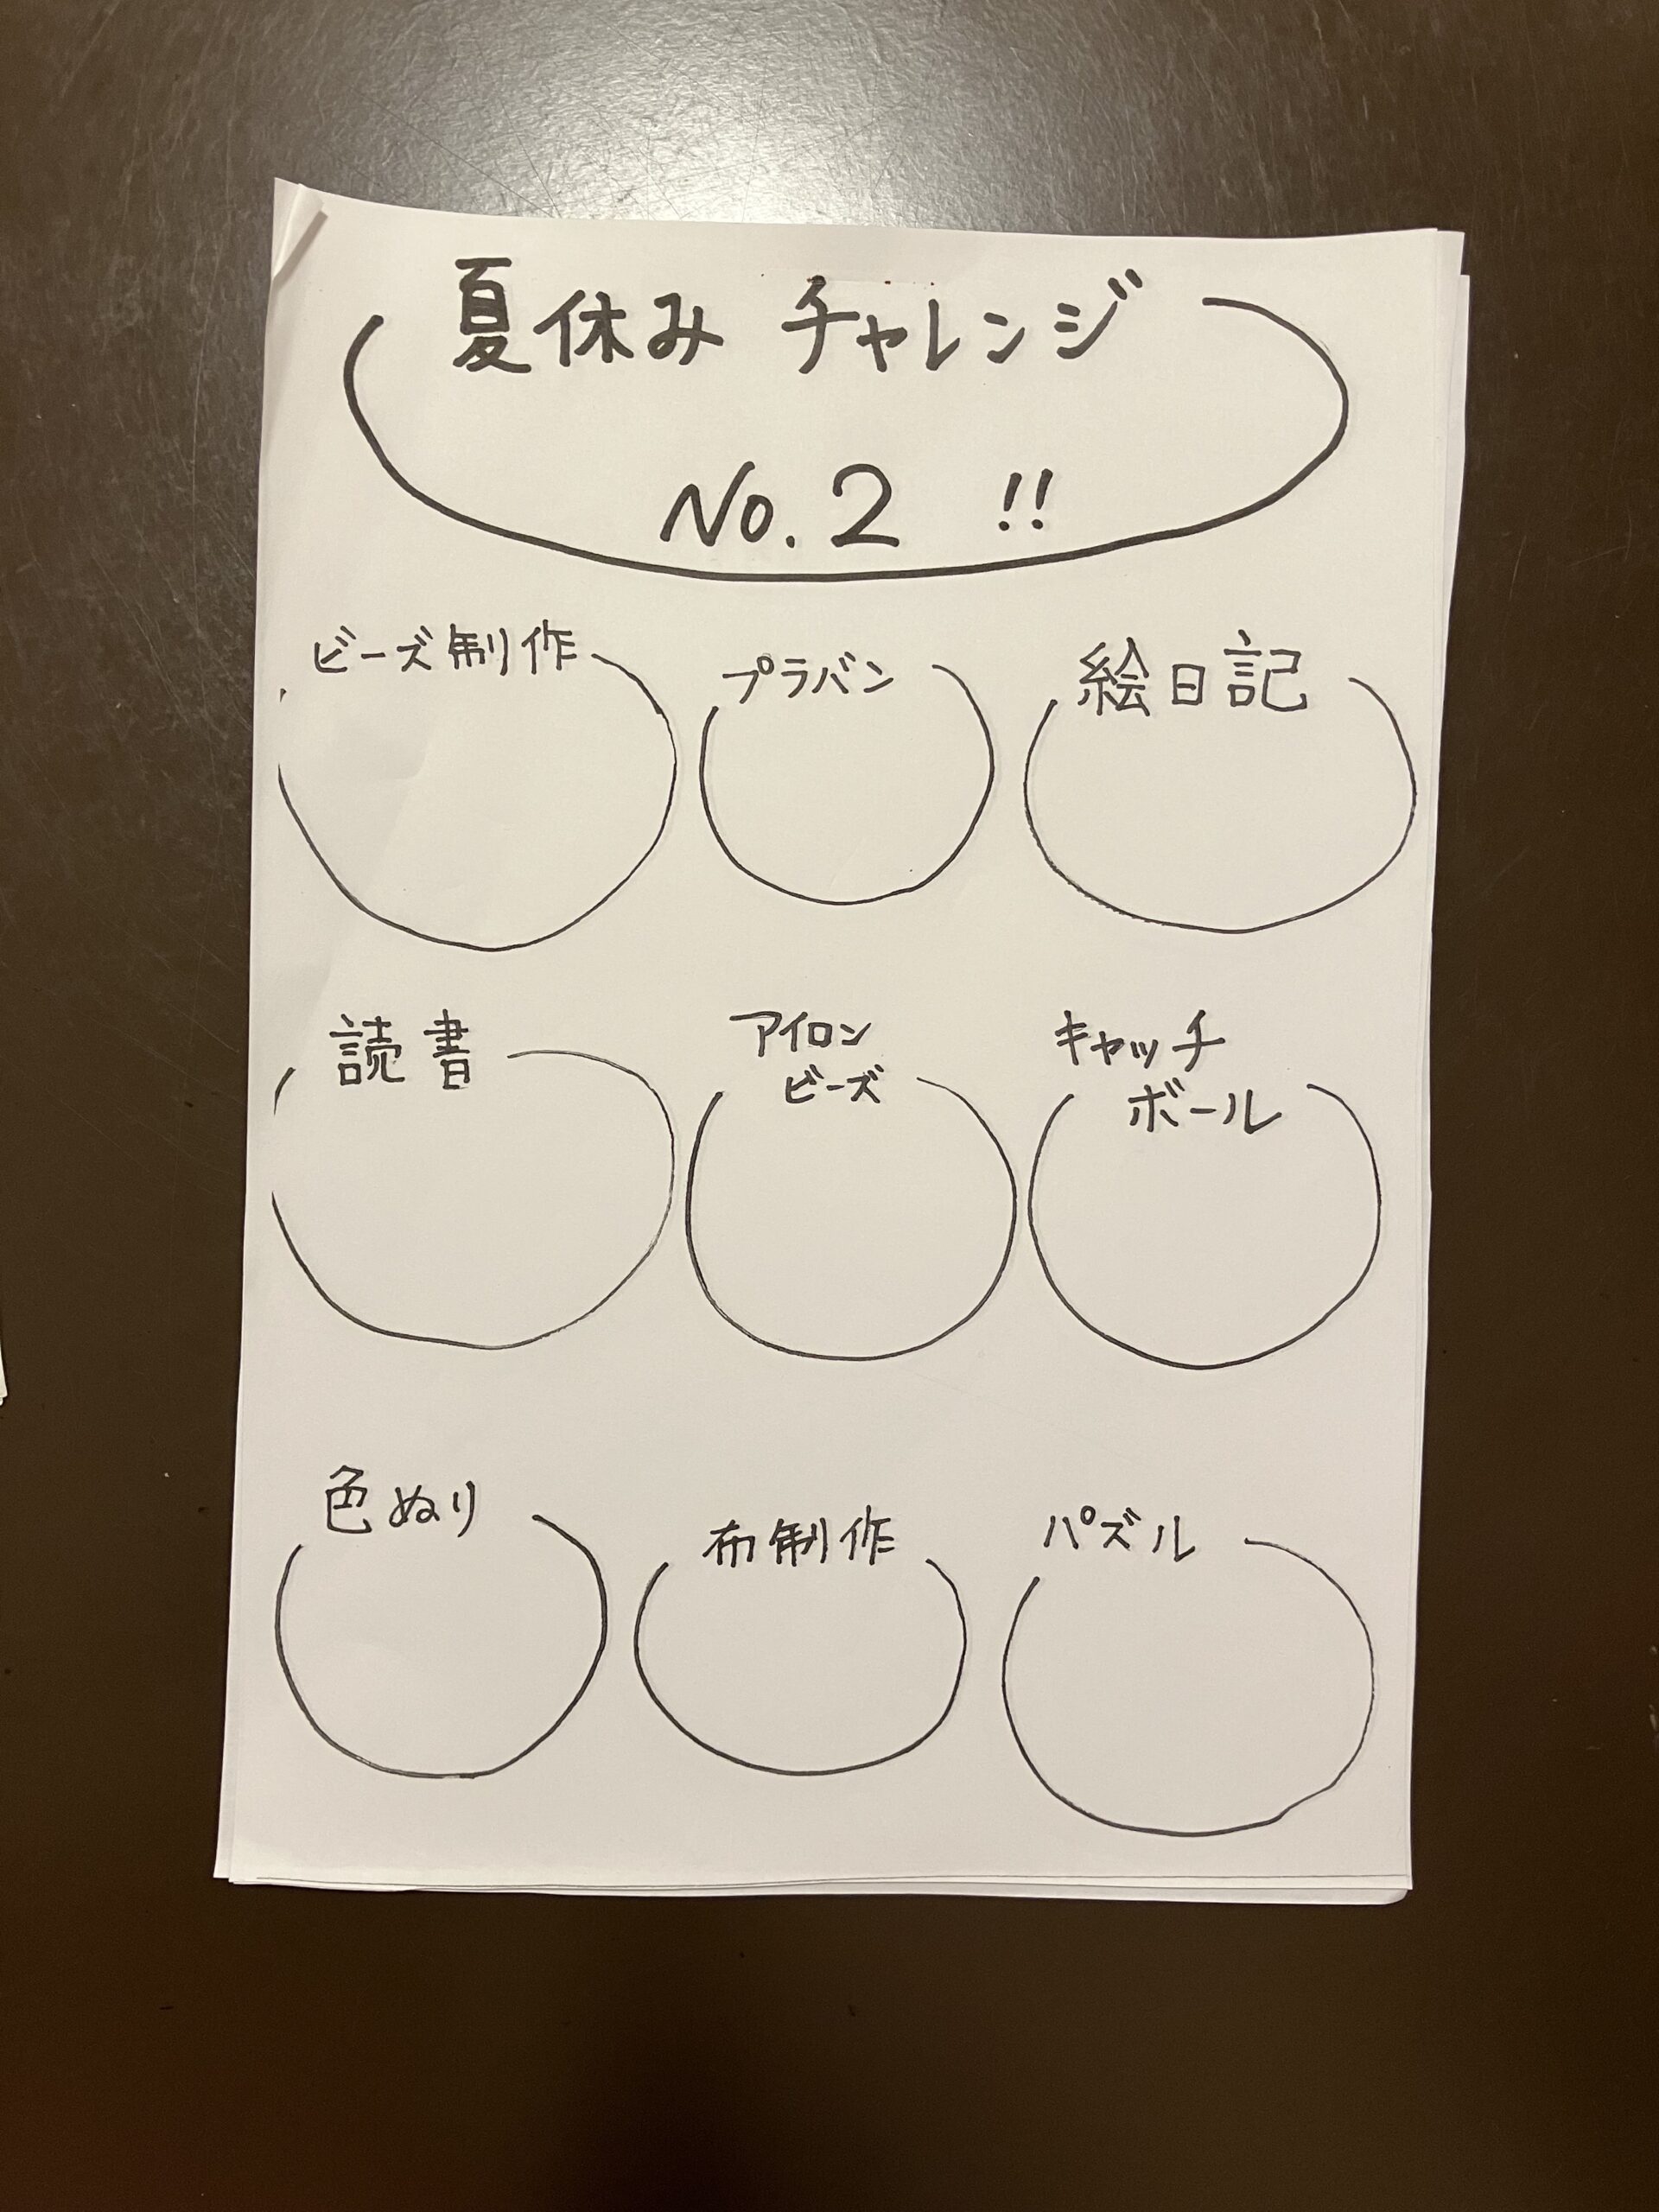 夏休み チャレンジ
No.2 !!
ビーズ制作
プラバン
絵日記
読書
アイロン
ビーズ
キャッチ
ボール
色ぬり
布制作
パズル